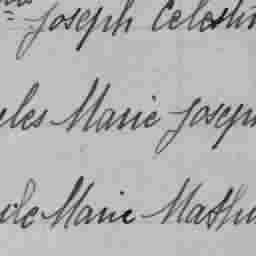 Joseph Celestin
les Marie Joseph
ile Marie Mathu